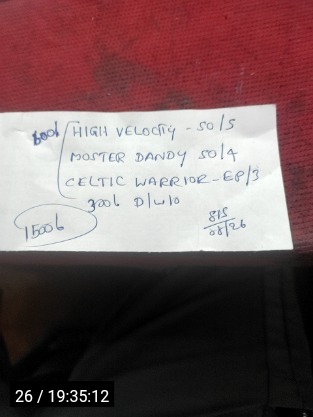 600b HIGH VELOCTIY - SO/5
MOSTER DANDY SO/4
CELTIC WARRIOR - EP/3
300b D/W/O
1500b
815
08/26
26 / 19:35:12